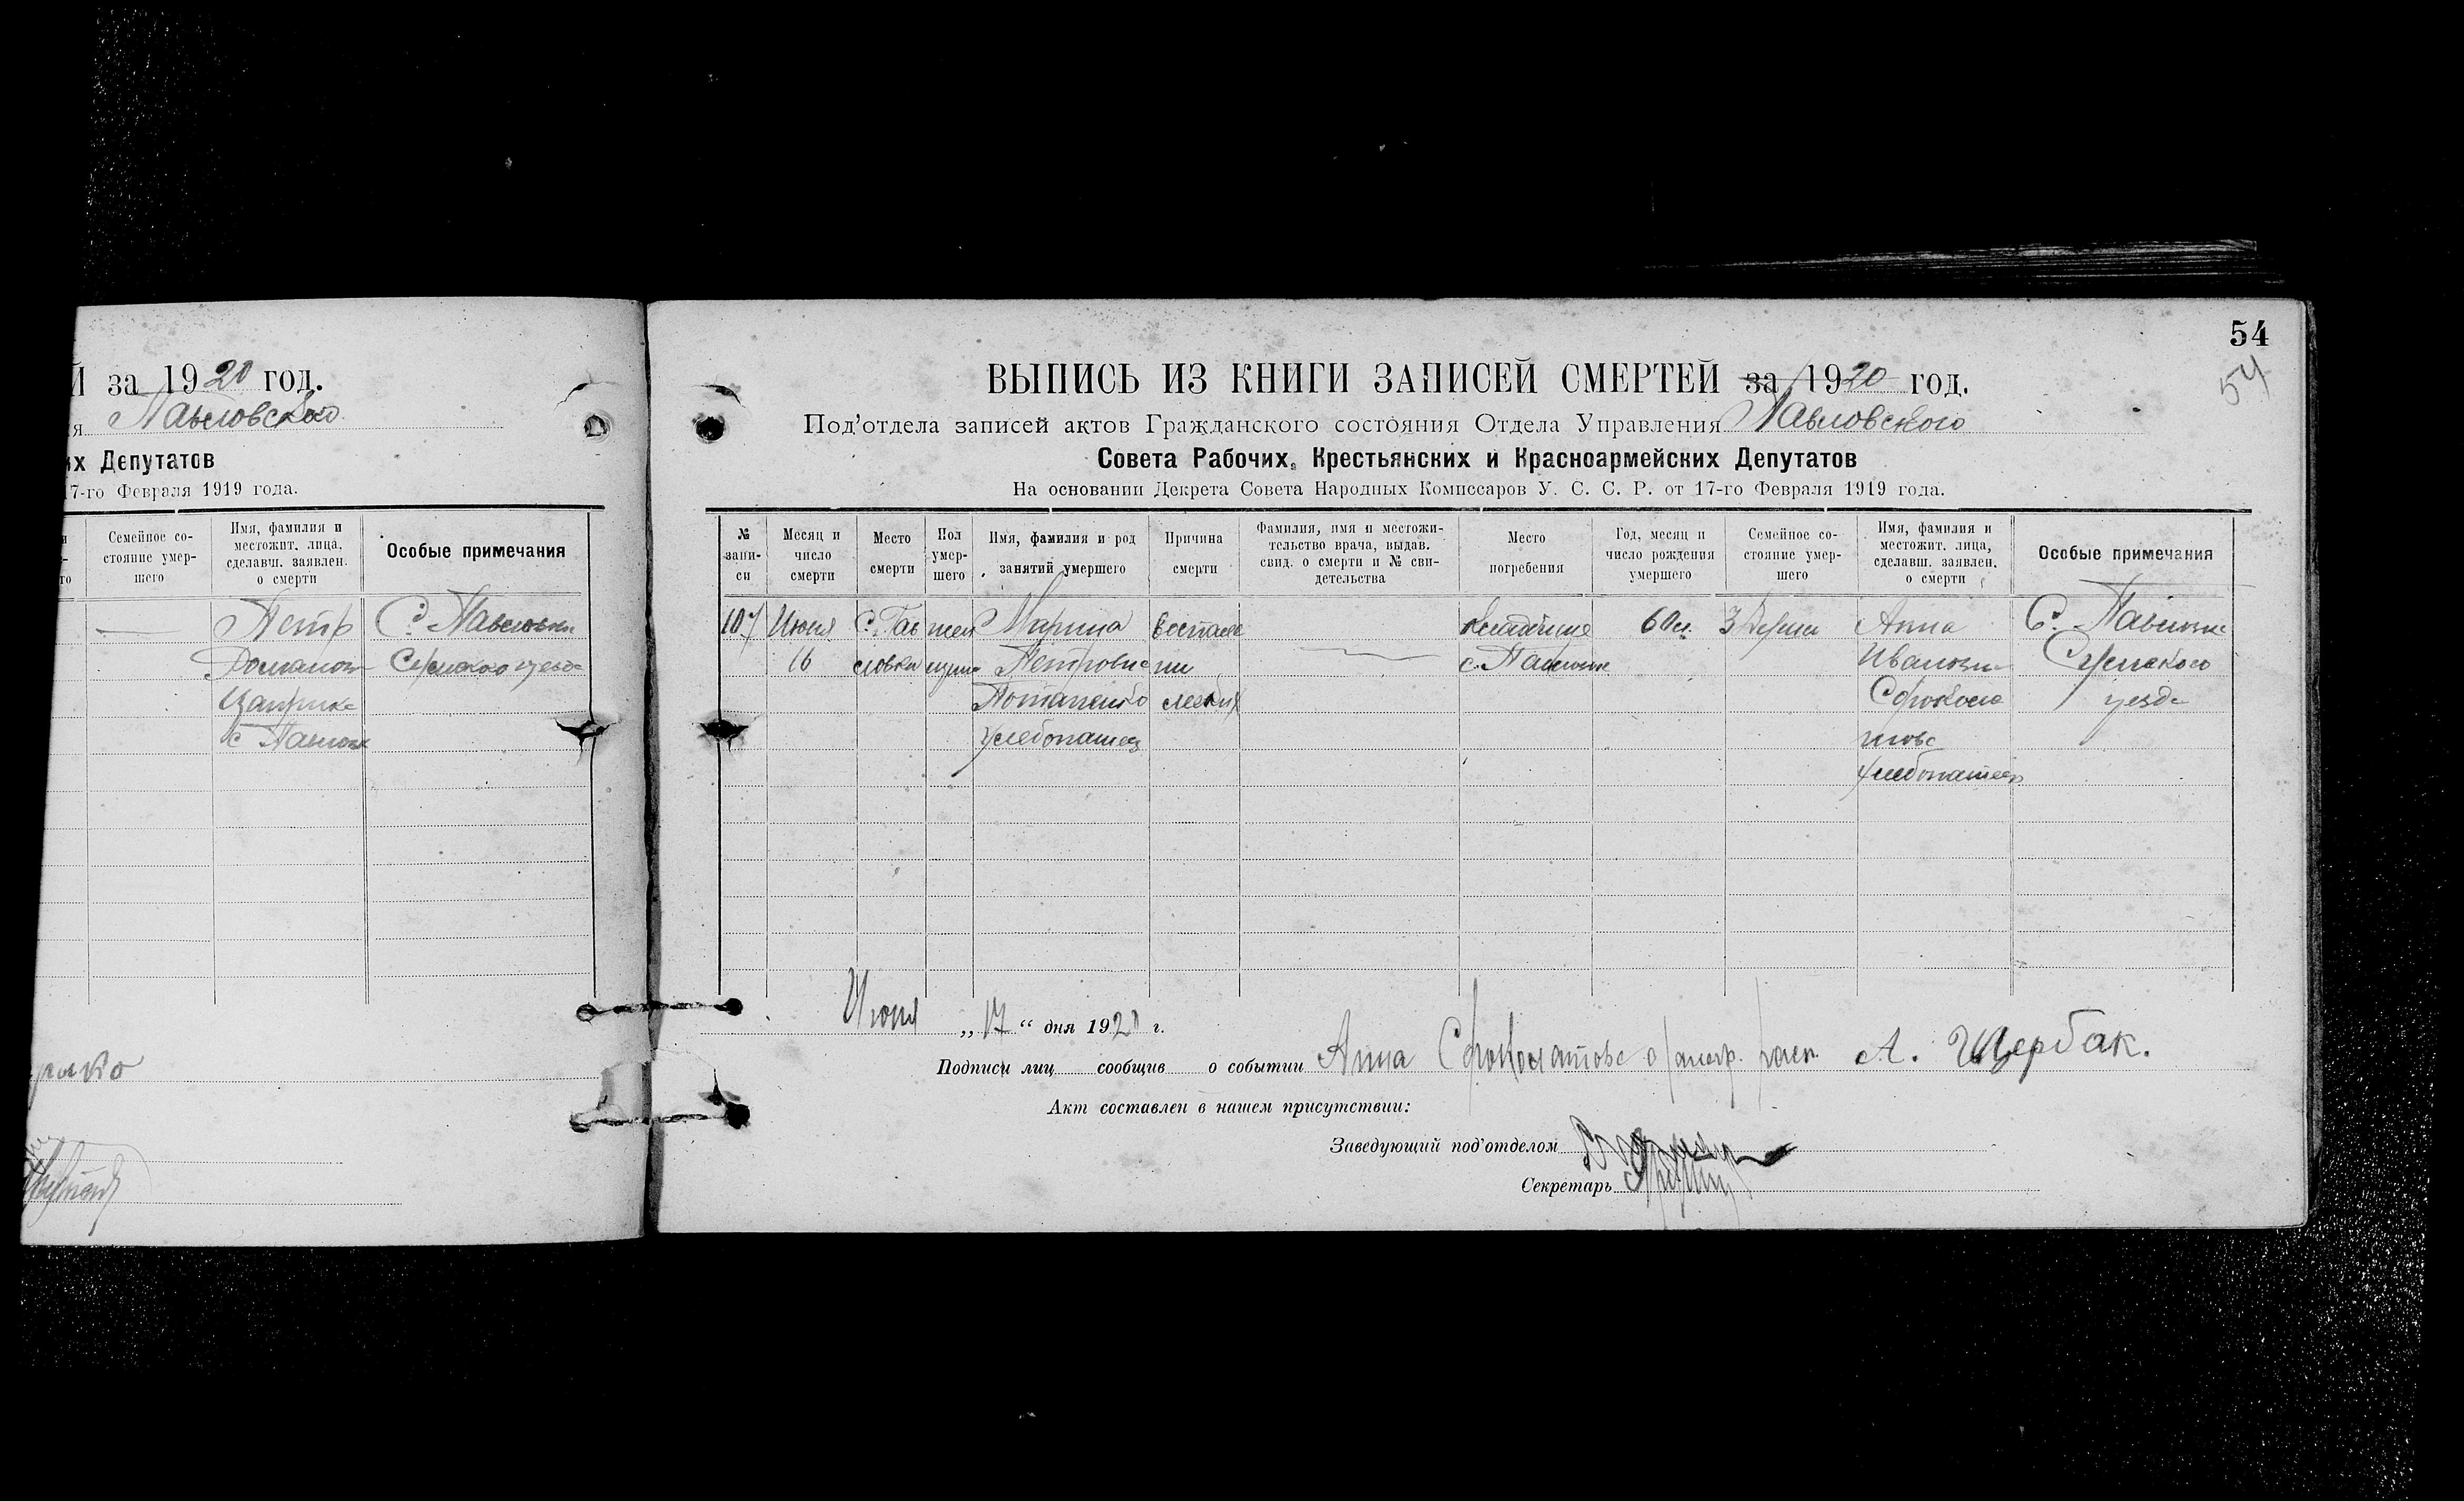 Й за 1920 год.
я Павловского
их Депутатов
17-го Февраля 1919 года.
Семейное со-
стояние умер-
шего
Имя, фамилия и
местожит. лица,
сделавш. заявлен.
о смерти
Особые примечания
Петр С. Павловки
Романов Сумского уезда
с Павловк
54
54
ВЫПИСЬ ИЗ КНИГИ ЗАПИСЕЙ СМЕРТЕЙ за 1920 год.
Под'отдела записей актов Гражданского состояния Отдела Управления Павловского
Совета Рабочих, Крестьянских и Красноармейских Депутатов
На основании Декрета Совета Народных Комиссаров У. С. С. Р. от 17-го Февраля 1919 года.
№
запи-
си
Месяц и
число
смерти
Место
смерти
Пол
умер-
шего
Имя, фамилия и род
занятий умершего
Причина
смерти
Фамилия, имя и местожи-
тельство врача, выдав.
свид. о смерти и № сви-
детельства
Место
погребения
Год, месяц и
число рождения
умершего
Семейное со-
стояние умер-
шего
Имя, фамилия и
местожит. лица,
сделавш. заявлен.
о смерти
Особые примечания
107 Июня С. Пав жен Марина воспале кладбище 60 л. 3 Анна С. Павловки
16 ловка щин Петровна ни с. Павловк Ивановна Сумского
Потапенко легких уезда
хлебопашец
хлебопашец
Июня „17“ дня 1920 г.
Подписи лиц сообщив о событии Анна А. Щербак.
Акт составлен в нашем присутствии:
Заведующий под'отделом
Секретарь